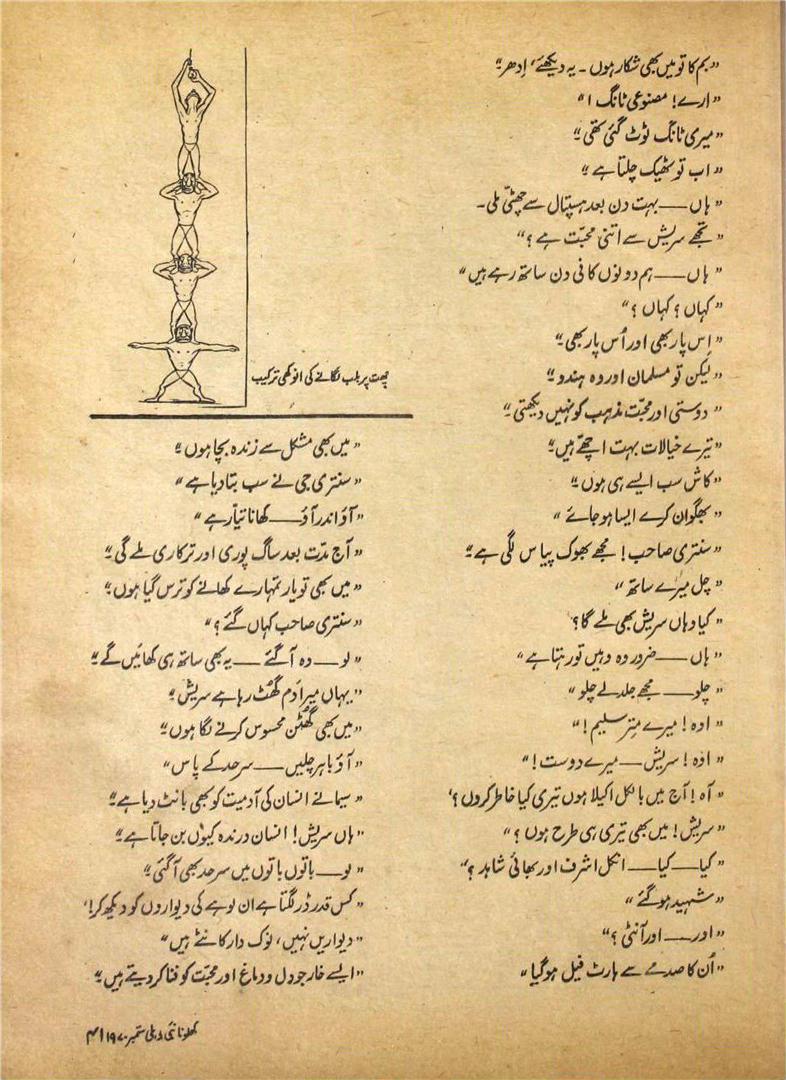 ”بم کا تو میں بھی شکار ہوں ۔ یہ دیکھئے، اِدھر۔“
”ارے! مصنوعی ٹانگ !“
”میری ٹانگ ٹوٹ گئی تھی۔“
”اب تو ٹھیک چلتا ہے۔“
”ہاں — بہت دن بعد ہسپتال سے چھٹّی ملی۔
”تجھے سریش سے اتنی محبّت ہے؟“
”ہاں — ہم دونوں کافی دن ساتھ رہے ہیں“
”کہاں؟ کہاں؟“
”اِس پار بھی اور اُس پار بھی۔“
”لیکن تو مسلمان اور وہ ہندو۔“
”دوستی اور محبّت مذہب کو نہیں دیکھتی۔“
”تیرے خیالات بہت اچھّے ہیں۔“
”کاش سب ایسے ہی ہوں۔“
”بھگوان کرے ایسا ہو جائے“
”سنتری صاحب! مجھے بھوک پیاس لگی ہے۔“
”چل میرے ساتھ“
”کیا وہاں سریش بھی ملے گا؟
”ہاں — ضرور وہ وہیں تو رہتا ہے“
”چلو — مجھے جلد لے چلو“
”اوہ! میرے مِتر سلیم!“
”اوہ! سریش — میرے دوست!“
”آہ! آج میں بالکل اکیلا ہوں تیری کیا خاطر کروں؟‘
”سریش! میں بھی تیری ہی طرح ہوں؟“
”کیا — کیا — انکل اشرف اور بھائی شاہد؟“
”شہید ہو گئے“
”اور — اور آنٹی؟“
”اُن کا صدمے سے ہارٹ فیل ہوگیا“
چھت پر بلب لگانے کی انوکھی ترکیب
”میں بھی مشکل سے زندہ بچا ہوں۔“
”سنتری جی نے سب بتا دیا ہے“
”آؤ اندر آؤ — کھانا تیّار ہے“
”آج مدّت بعد ساگ پوری اور ترکاری ملے گی۔“
”میں بھی تو یار تمہارے کھانے کو ترس گیا ہوں۔“
”سنتری صاحب کہاں گئے؟“
”لو — وہ آگئے — یہ بھی ساتھ ہی کھائیں گے۔“
”یہاں میرا دَم گھُٹ رہا ہے سریش۔“
”میں بھی گھُٹن محسوس کرنے لگا ہوں۔“
”آؤ باہر چلیں — سرحد کے پاس“
”سیما نے انسان کی آدمیت کو بھی بانٹ دیا ہے۔“
”ہاں سریش! انسان درندہ کیوں بن جاتا ہے۔“
”لو — باتوں باتوں میں سرحد بھی آگئی۔“
”کس قدر ڈر لگتا ہے ان لوہے کی دیواروں کو دیکھ کر!‘
”دیواریں نہیں، نوک دار کانٹے ہیں“
”ایسے خار جو دل و دماغ اور محبّت کو فنا کر دیتے ہیں۔“
کھلونا نئی دہلی ستمبر ۱۹۷۰ ۴۱